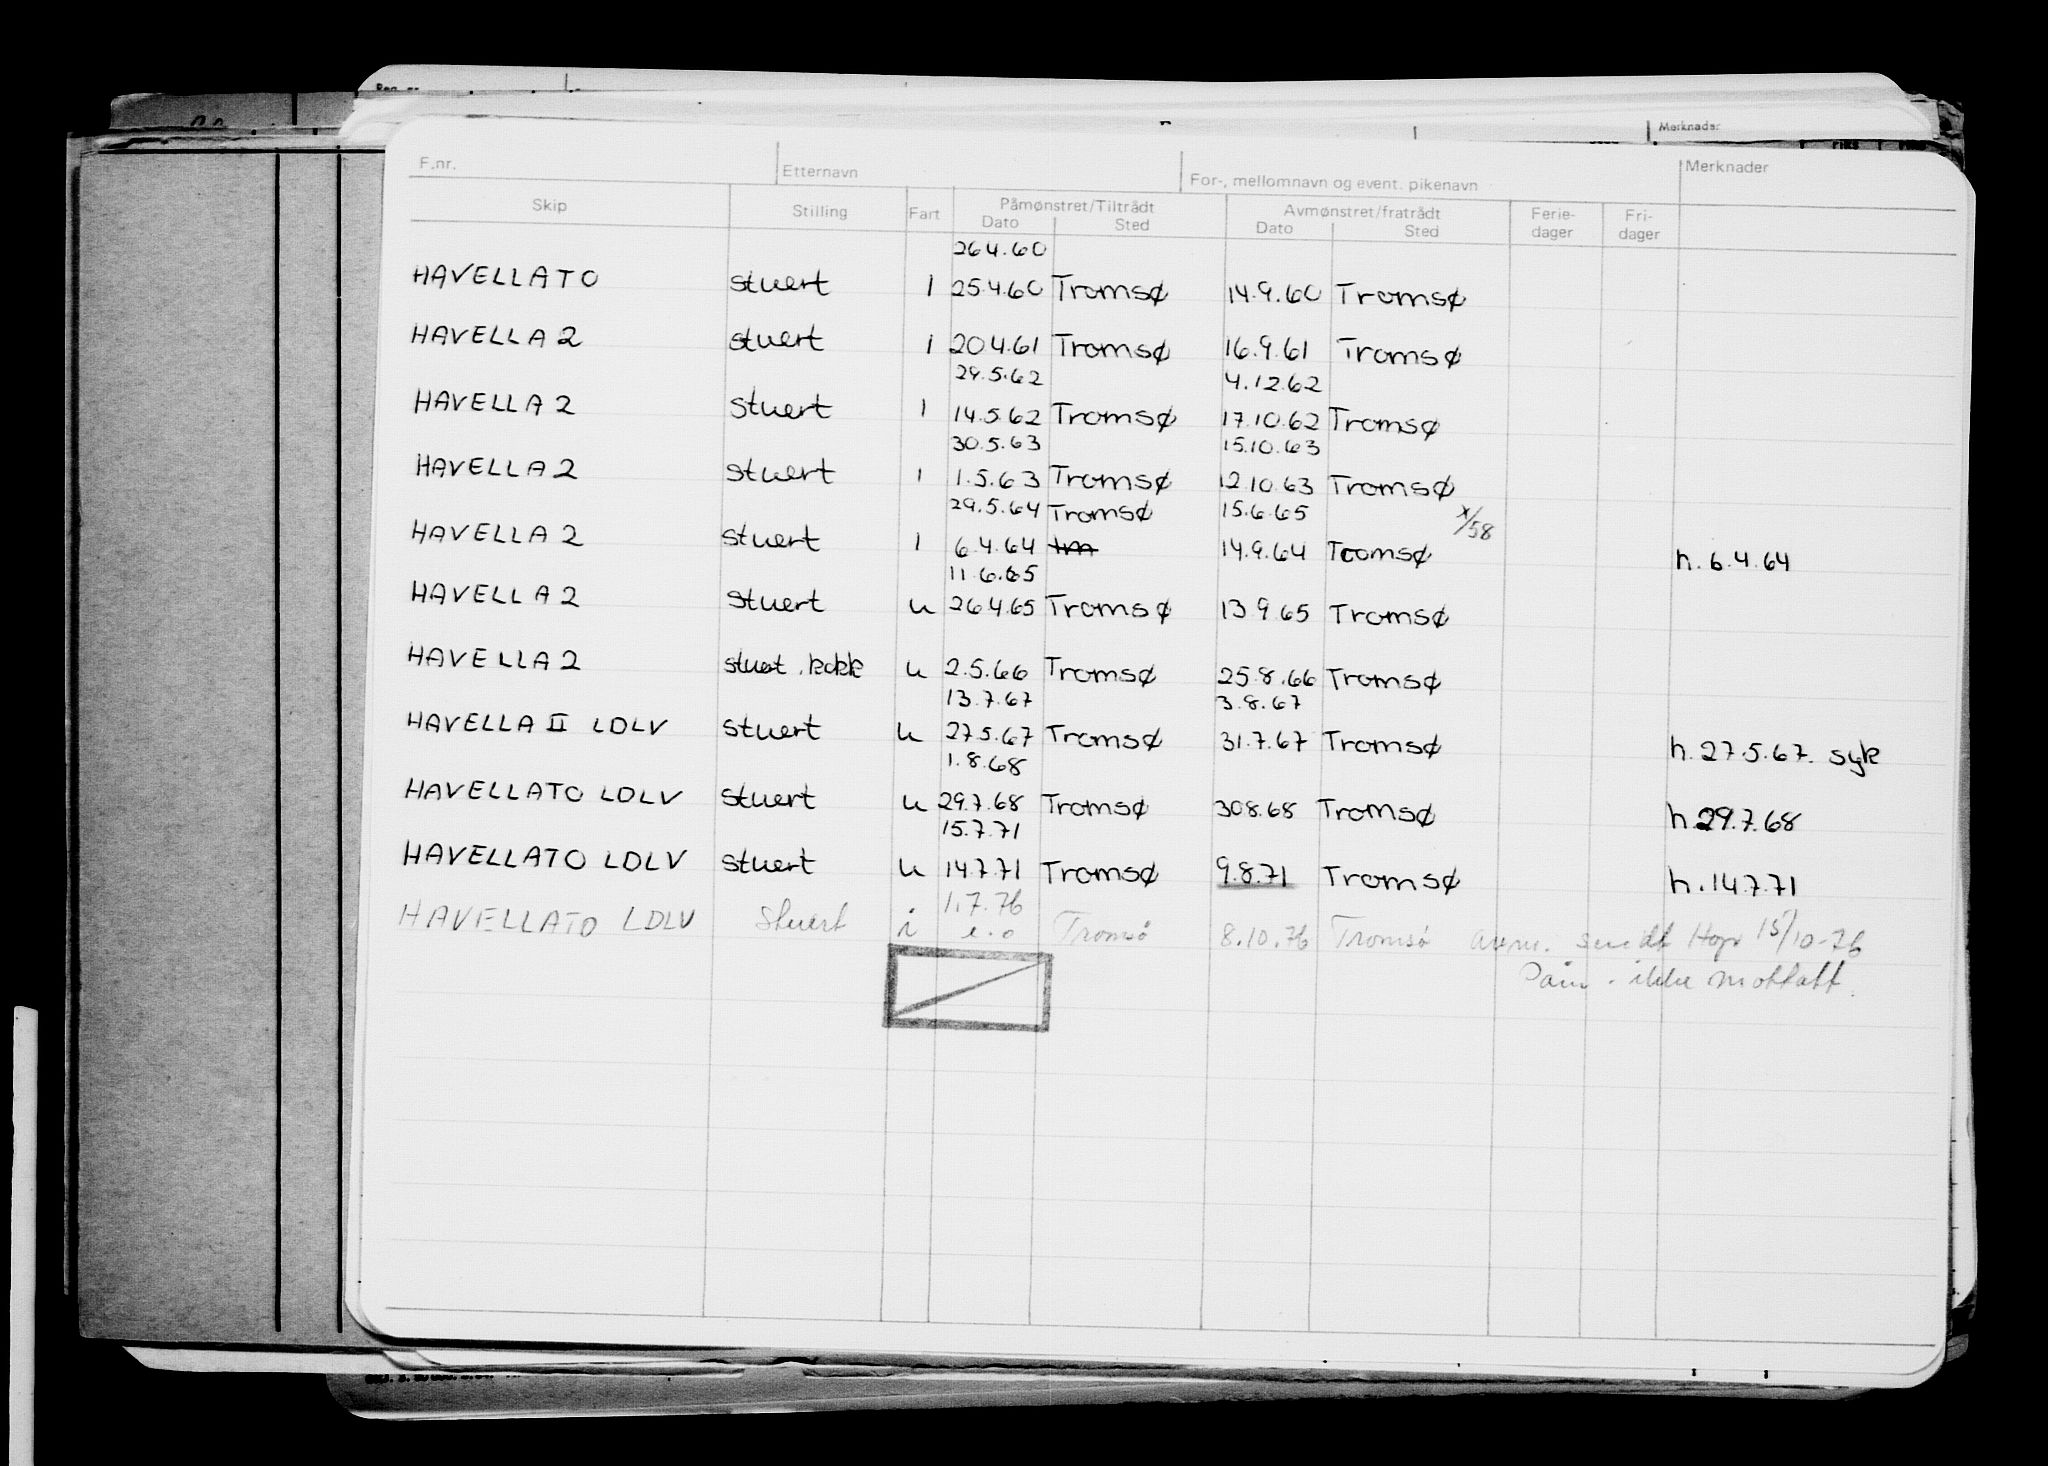 Merknader
F.nr. Etternavn For-, mellomnavn og event. pikenavn Merknader
Skip Stilling Fart Påmønstret/Tiltrådt Avmønstret/fratrådt Ferie- Fri-
Dato Sted Dato Sted dager dager
26.4.60
HAVELLATO stuert I 25.4.60 Tromsø 14.9.60 Tromsø
HAVELLA 2 stuert I 20.4.61 Tromsø 16.9.61 Tromsø
29.5.62 4.12.62
HAVELLA 2 stuert I 14.5.62 Tromsø 17.10.62 Tromsø
30.5.63 15.10.63
HAVELLA 2 stuert I 1.5.63 Tromsø 12.10.63 Tromsø
29.5.64 Tromsø 15.6.65 x/58
HAVELLA 2 stuert I 6.4.64 14.9.64 Tromsø h. 6.4.64
11.6.65
HAVELLA 2 stuert u 26.4.65 Tromsø 13.9.65 Tromsø
HAVELLA 2 stuert. kokk u 2.5.66 Tromsø 25.8.66 Tromsø
13.7.67 3.8.67
HAVELLA II LDLV stuert u 27.5.67 Tromsø 31.7.67 Tromsø h. 27.5.67. syk
1.8.68
HAVELLATO LDLV stuert u 29.7.68 Tromsø 30.8.68 Tromsø h. 29.7.68
15.7.71
HAVELLATO LDLV stuert u 14.7.71 Tromsø 9.8.71 Tromsø h. 14.7.71
1.7.76
HAVELLATO LDLV Stuert i e.o Tromsø 8.10.76 Tromsø avm. sendt 15/10-76
Påm. ikke mottatt.